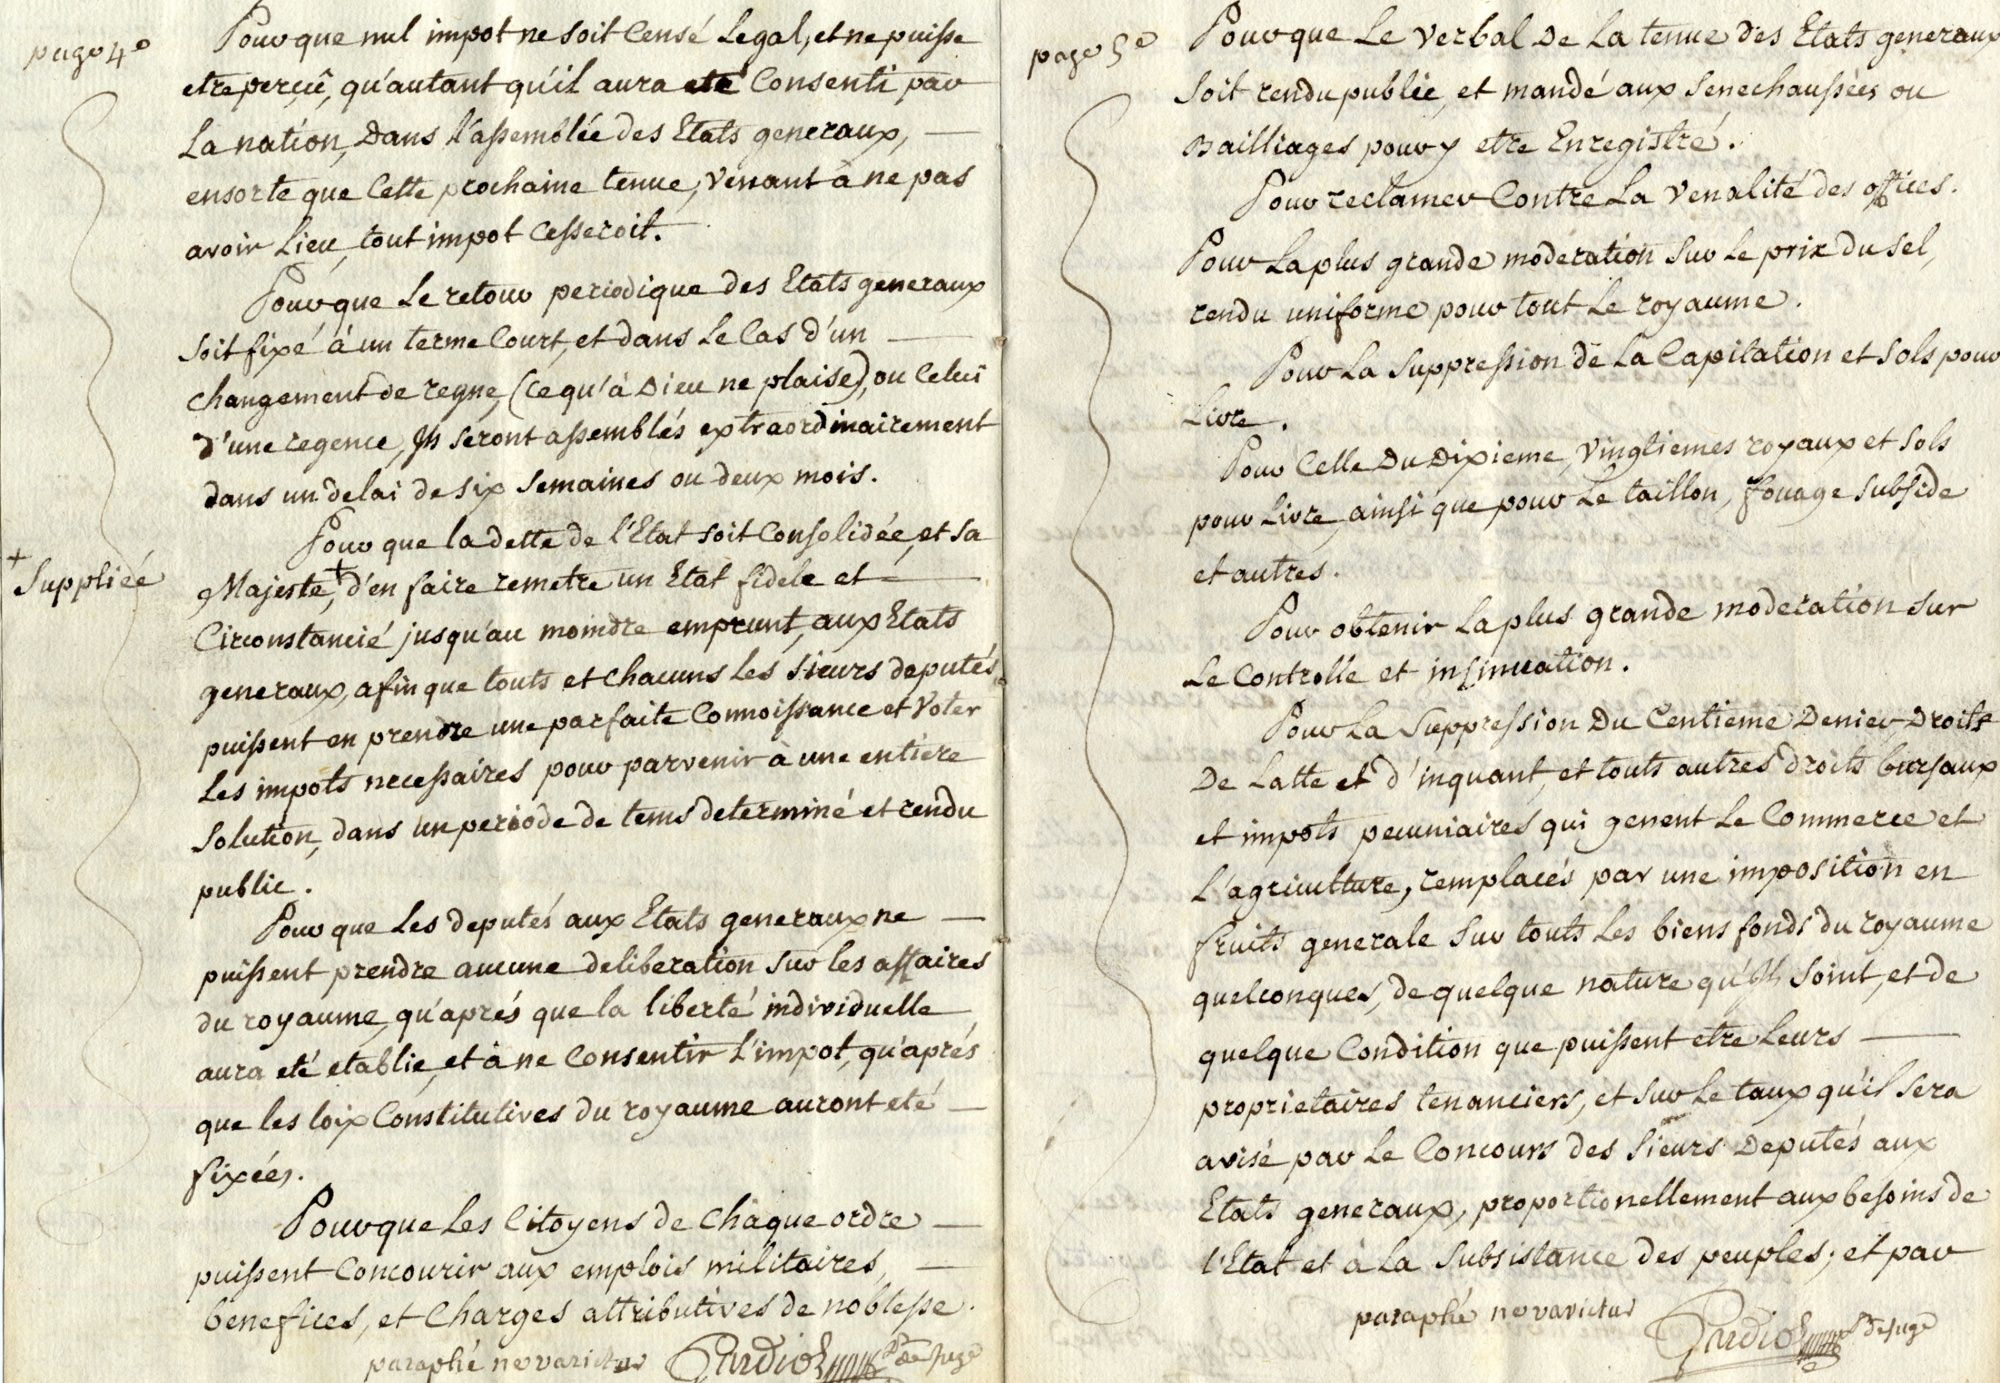 page 4e
Pour que nul impot ne soit Censé Legal, et ne puisse
etre perçû, qu'autant qu'il aura eté Consenti par
La nation, Dans l'assemblée des Etats generaux,
ensorte que Cette prochaine tenue, venant à ne pas
avoir Lieu, tout impot Cesseroit.
Pour que Le retour periodique des Etats generaux
soit fixé à un terme Court, et dans Le Cas d'un
changement de regne, (ce qu'à Dieu ne plaise), ou Celui
d'une regence, Ils seront assemblés extraordinairement
dans un delai de six semaines ou deux mois.
Pour que la dette de l'Etat soit Consolidée, et sa
+
Suppliée
Majesté + d'en faire remetre un Etat fidele et
Circonstancié jusqu'au moindre emprunt, aux Etats
generaux, afin que touts et chacuns Les Sieurs deputés
puissent en prendre une parfaite Connoissance et Voter
Les impots necessaires pour parvenir à une entiere
Solution, dans un periode de tems determiné et rendu
public.
Pour que Les deputés aux Etats generaux ne
puissent prendre aucune deliberation sur les affaires
du royaume, qu'aprés que la liberté individuelle
aura eté etablie, et à ne Consentir L'impot, qu'aprés
que les loix Constitutives du royaume auront eté
fixées.
Pour que Les Citoyens de Chaque ordre
puissent Concourir aux emplois militaires,
benefices, et Charges attributives de noblesse.
paraphé ne varietur Pardiol de juge
page 5e
Pour que Le verbal De La tenue des Etats generaux
soit rendu public, et mandé aux Senechaussées ou
Bailliages pour y etre Enregistré.
Pour reclamer Contre La Venalité des offices.
Pour La plus grande moderation Sur Le prix du Sel,
rendu uniforme pour tout Le royaume.
Pour La Suppression de La Capitation et Sols pour
Livre.
Pour Celle Du Dixieme, Vingtiemes royaux et Sols
pour Livre, ainsi que pour Le taillon, fouage Subside
et autres.
Pour obtenir La plus grande moderation sur
Le Controlle et insinuation.
Pour La Suppression Du Centieme Denier, Droits
De Latte et d'inquant, et touts autres droits bursaux
et impots pecuniaires qui genent Le Commerce et
L'agriculture, remplacés par une imposition en
fruits generale Sur touts Les biens fonds du royaume
quelconques, de quelque nature qu'Ils Soint, et de
quelque Condition que puissent etre Leurs
proprietaires tenanciers, et Sur Le taux qu'il Sera
avisé par Le Concours des Sieurs Deputés aux
Etats generaux, proportionellement aux besoins de
l'Etat et à La Subsistance des peuples; et par
paraphé ne varietur Pardiol de juge